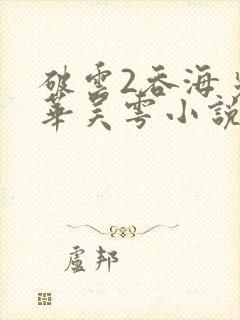 破雲2吞海
華吴雩小說
盧邦